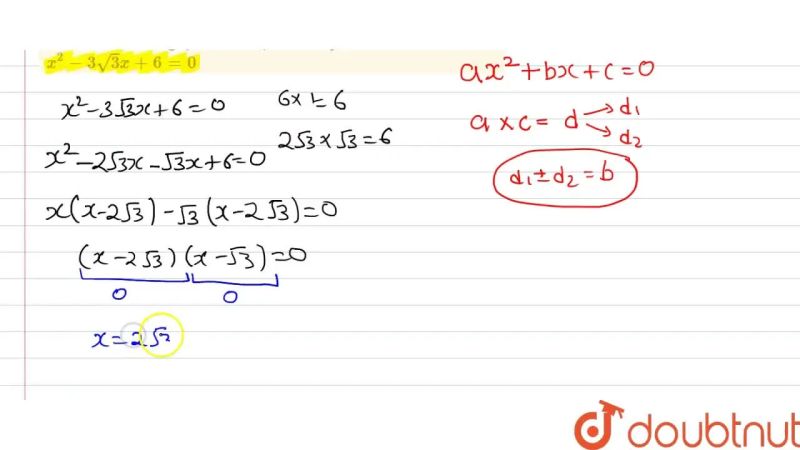 x² − 3√3x + 6 = 0
x² − 3√3x + 6 = 0
6 × 1 = 6
x² − 2√3x − √3x + 6 = 0
2√3 × √3 = 6
x(x − 2√3) − √3(x − 2√3) = 0
(x − 2√3)(x − √3) = 0
0 0
x = 2√3
ax² + bx + c = 0
a × c = d → d₁
→ d₂
d₁ ± d₂ = b
doubtnut